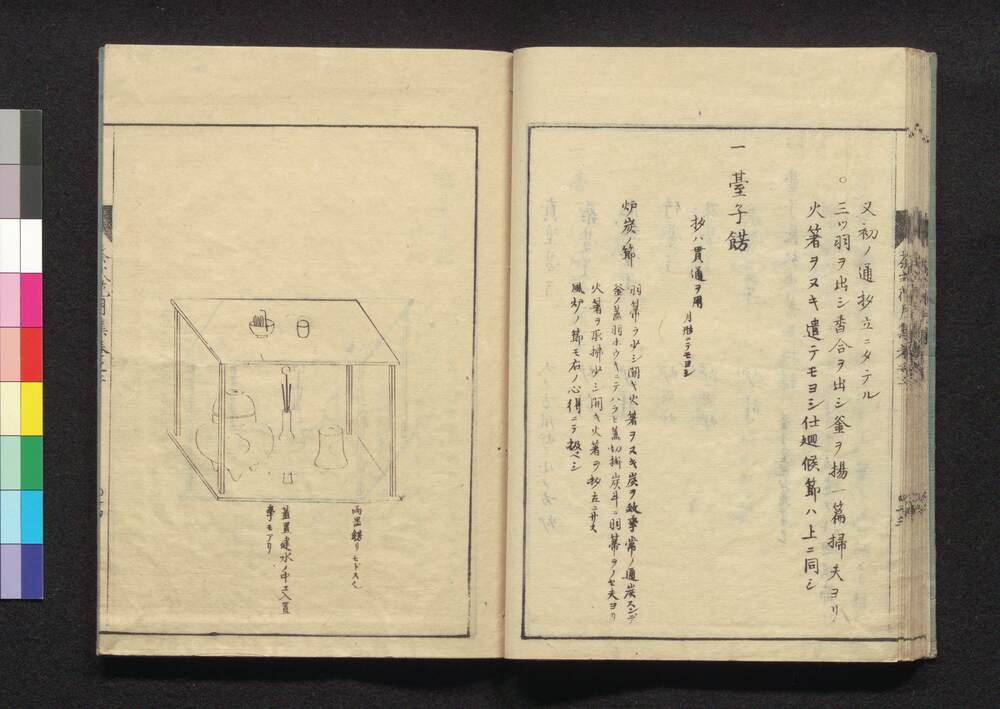 又初ノ通杓立ニタテル
○三ツ羽ヲ出シ香合ヲ出シ釜ヲ揚一篇掃夫ヨリ
火箸ヲヌキ遣テモヨシ仕廻候節ハ上ニ同シ
一 臺子餝
杓ハ貫通ヲ用 月形ニテモヨシ
炉炭ノ節
羽箒ヲ少シ開キ火箸ヲヌキ炭ヲ致事常ノ通炭スンデ
釜ノ蓋羽ホウキニテハラヒ蓋切掛炭斗ニ羽箒ヲノセ夫ヨリ
火箸ヲ取掃少シ開キ火箸ヲ杓立ニサス
風炉ノ節モ右ノ心得ニテ扱ベシ
両器餝リモドスヘ
蓋置建水ノ中ヘ入置
事モアリ